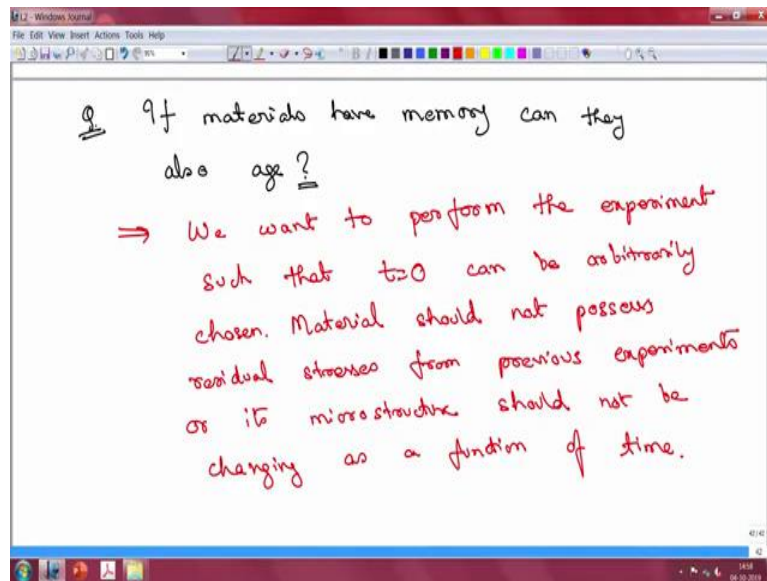 L2 - Windows Journal
File Edit View Insert Actions Tools Help
Q. If materials have memory can they
also age?
⇒ We want to perform the experiment
such that t=0 can be arbitrarily
chosen. Material should not possess
residual stresses from previous experiments
or its microstructure should not be
changing as a function of time.
42/42
42
14:58
04-10-2019